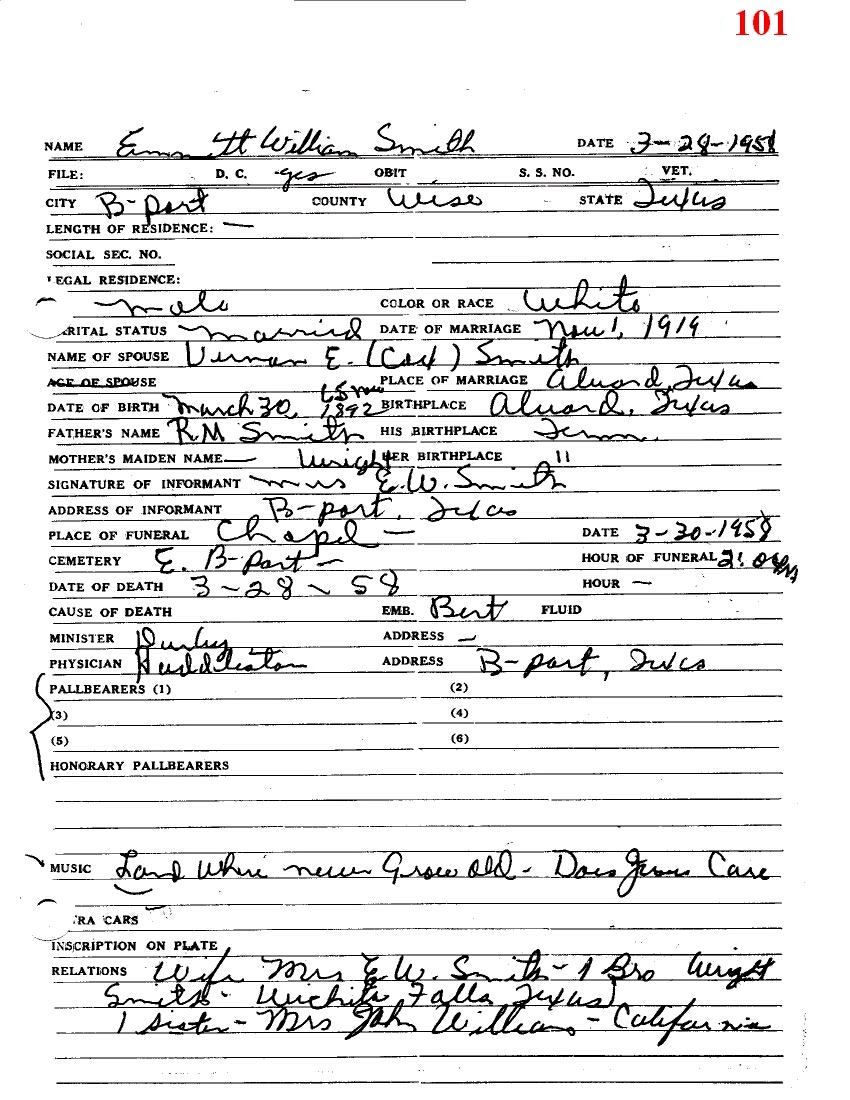 101
NAME Emmett William Smith DATE 3-28-1958
FILE: D. C. yes OBIT S. S. NO. VET.
CITY B-port COUNTY Wise STATE Texas
LENGTH OF RESIDENCE: —
SOCIAL SEC. NO.
EGAL RESIDENCE:
male COLOR OR RACE White
RITAL STATUS married DATE OF MARRIAGE Nov 1, 1919
NAME OF SPOUSE E. (Cox) Smith
AGE OF SPOUSE PLACE OF MARRIAGE Alvord, Texas
DATE OF BIRTH March 30, 1892 BIRTHPLACE Alvord, Texas
FATHER'S NAME R M Smith HIS BIRTHPLACE Tenn.
MOTHER'S MAIDEN NAME — Wright HER BIRTHPLACE "
SIGNATURE OF INFORMANT Mrs E.W. Smith
ADDRESS OF INFORMANT B-port, Texas
PLACE OF FUNERAL Chapel — DATE 3-30-1958
CEMETERY E. B-Port — HOUR OF FUNERAL 2:
DATE OF DEATH 3-28-58 HOUR —
CAUSE OF DEATH EMB. Bert FLUID
MINISTER ADDRESS —
PHYSICIAN Huddleston ADDRESS B-port, Texas
PALLBEARERS (1) (2)
(3) (4)
(5) (6)
HONORARY PALLBEARERS
MUSIC Land Where never Grow old - Does Jesus Care
RA CARS
INSCRIPTION ON PLATE
RELATIONS Wife Mrs E.W. Smith - 1 Bro Wright
Smith - Wichita Falls, Texas
1 sister - Mrs John Williams - California